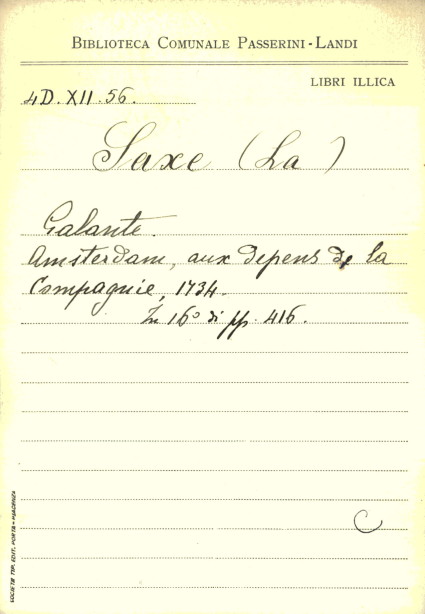 BIBLIOTECA COMUNALE PASSERINI-LANDI
LIBRI ILLICA
4D. XII. 56.
Saxe (La)
Galante.
Amsterdam, aux depens de la
Compagnie, 1734.
In 16° di pp. 416.
C
SOCIETÀ TIP. EDIT. PORTA - PIACENZA